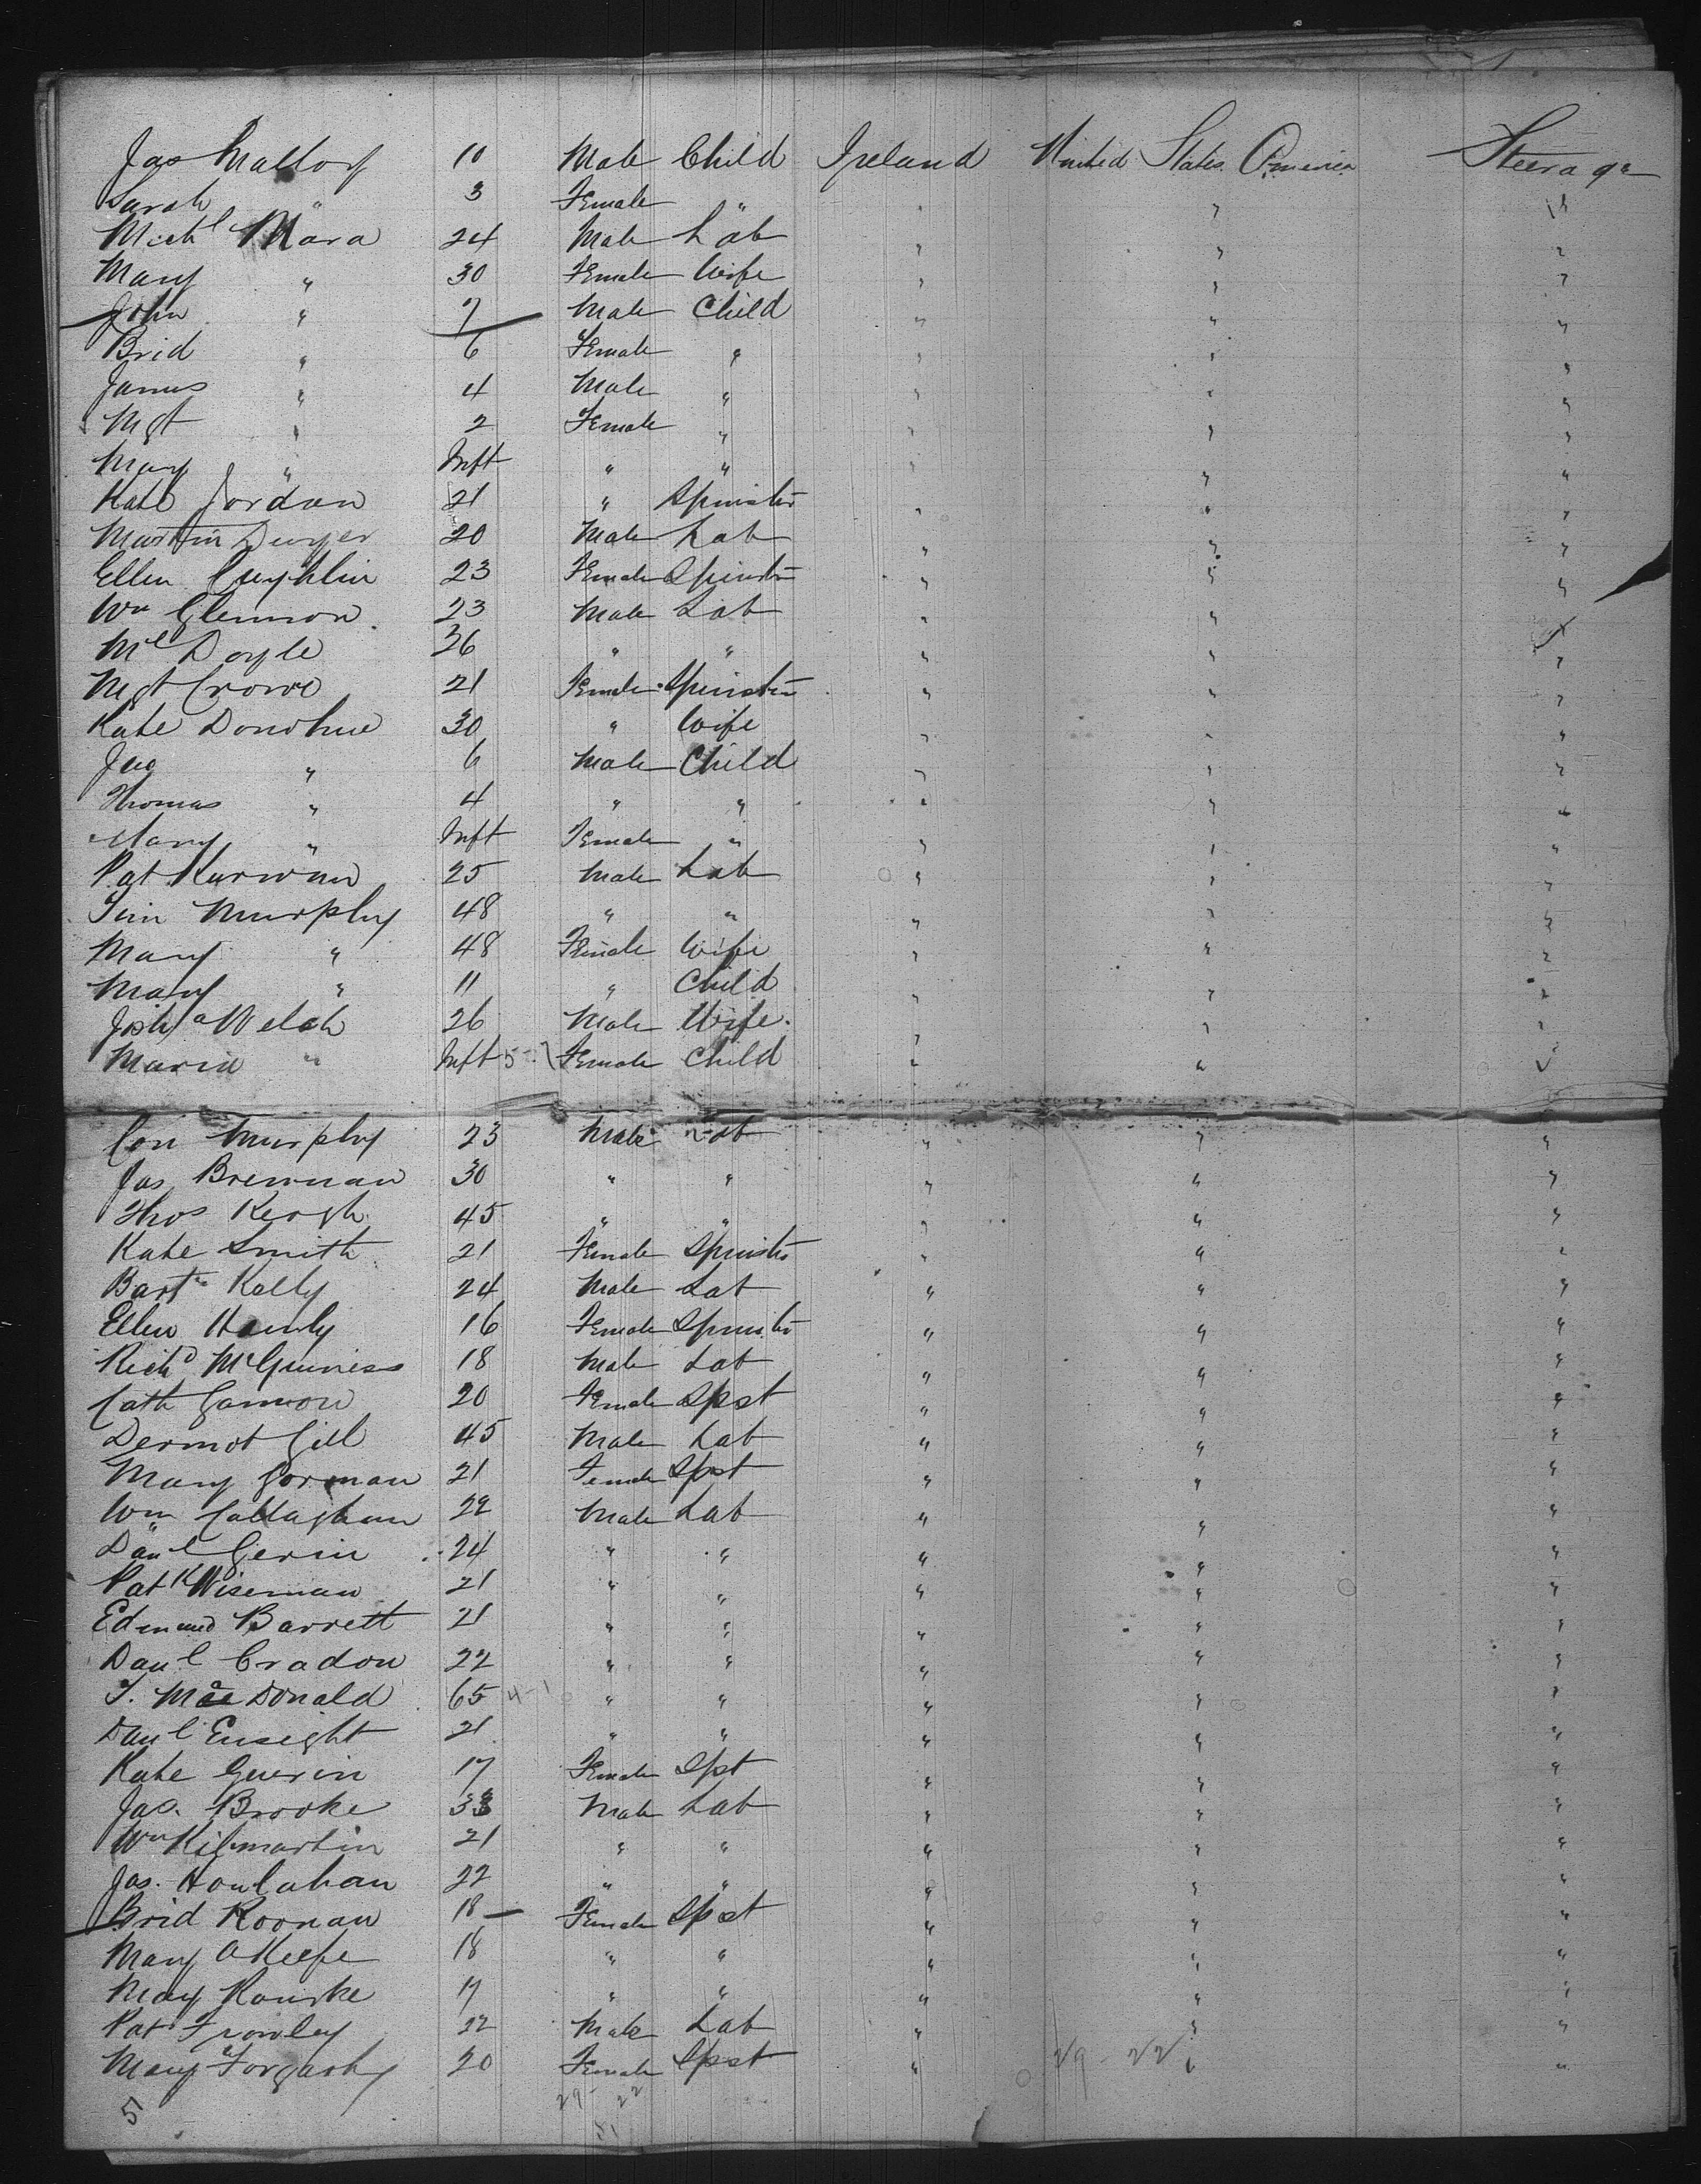 Jas Malloy 10 Male Child Ireland United States America Steerage
Sarah " 3 Female " " " "
Michl Mara 24 Male Lab " " "
Mary " 30 Female Wife " " "
John " 7 Male Child " " "
Brid " 6 Female " " " "
James " 4 Male " " " "
Mgt " 2 Female " " " "
Mary " Inft " " " " "
Kate Jordan 21 " Spinster " " "
Martin Dwyer 20 Male Lab " " "
Ellen Cughlin 23 Female Spinster " " "
Wm Glennon 23 Male Lab " " "
Ml Doyle 36 " " " " "
Mgt Crowe 21 Female Spinster " " "
Kate Donohue 30 " Wife " " "
Jno " 6 Male Child " " "
Thomas " 4 " " " " "
Mary " Inft Female " " " "
Pat Kurwan 25 Male Lab " " "
Tim Murphy 48 " " " " "
Mary " 48 Female Wife " " "
Mary " 11 " Child " " "
Josha Welch 26 Male Wife " " "
Maria " Inft 5-7 Female Child " " "
Con Murphy 23 Male Lab " " "
Jas Brennan 30 " " " " "
Thos Keogh 45 " " " " "
Kate Smith 21 Female Spinster " " "
Bartw Kelly 24 Male Lab " " "
Ellen Hanly 16 Female Spinster " " "
Richd McGuiness 18 Male Lab " " "
Cath Gannon 20 Female Spst " " "
Dermot Gill 45 Male Lab " " "
Mary Gorman 21 Female Spst " " "
Wm Callaghan 22 Male Lab " " "
Danl Gerin 24 " " " " "
Patk Wiseman 21 " " " " "
Edmund Barrett 21 " " " " "
Danl Cradon 22 " " " " "
T. MacDonald 65 4-1 " " " " "
Danl Enright 21 " " " " "
Kate Guerin 17 Female Spt " " "
Jas. Brooke 33 Male Lab " " "
Wm Kilmartin 21 " " " " "
Jas. Houlahan 22 " " " " "
Brid Roonan 18 Female Spst " " "
Mary O Keefe 18 " " " " "
May Rourke 17 " " " " "
Pat Frowley 22 Male Lab " " "
Mary Forgarty 20 Female Spst " 29-22 " "
5 29-22
51